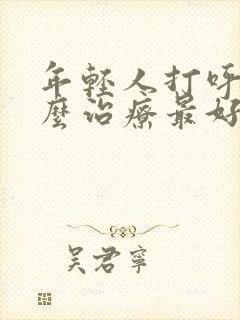 年轻人打呼
麼治療最好
吴君寧